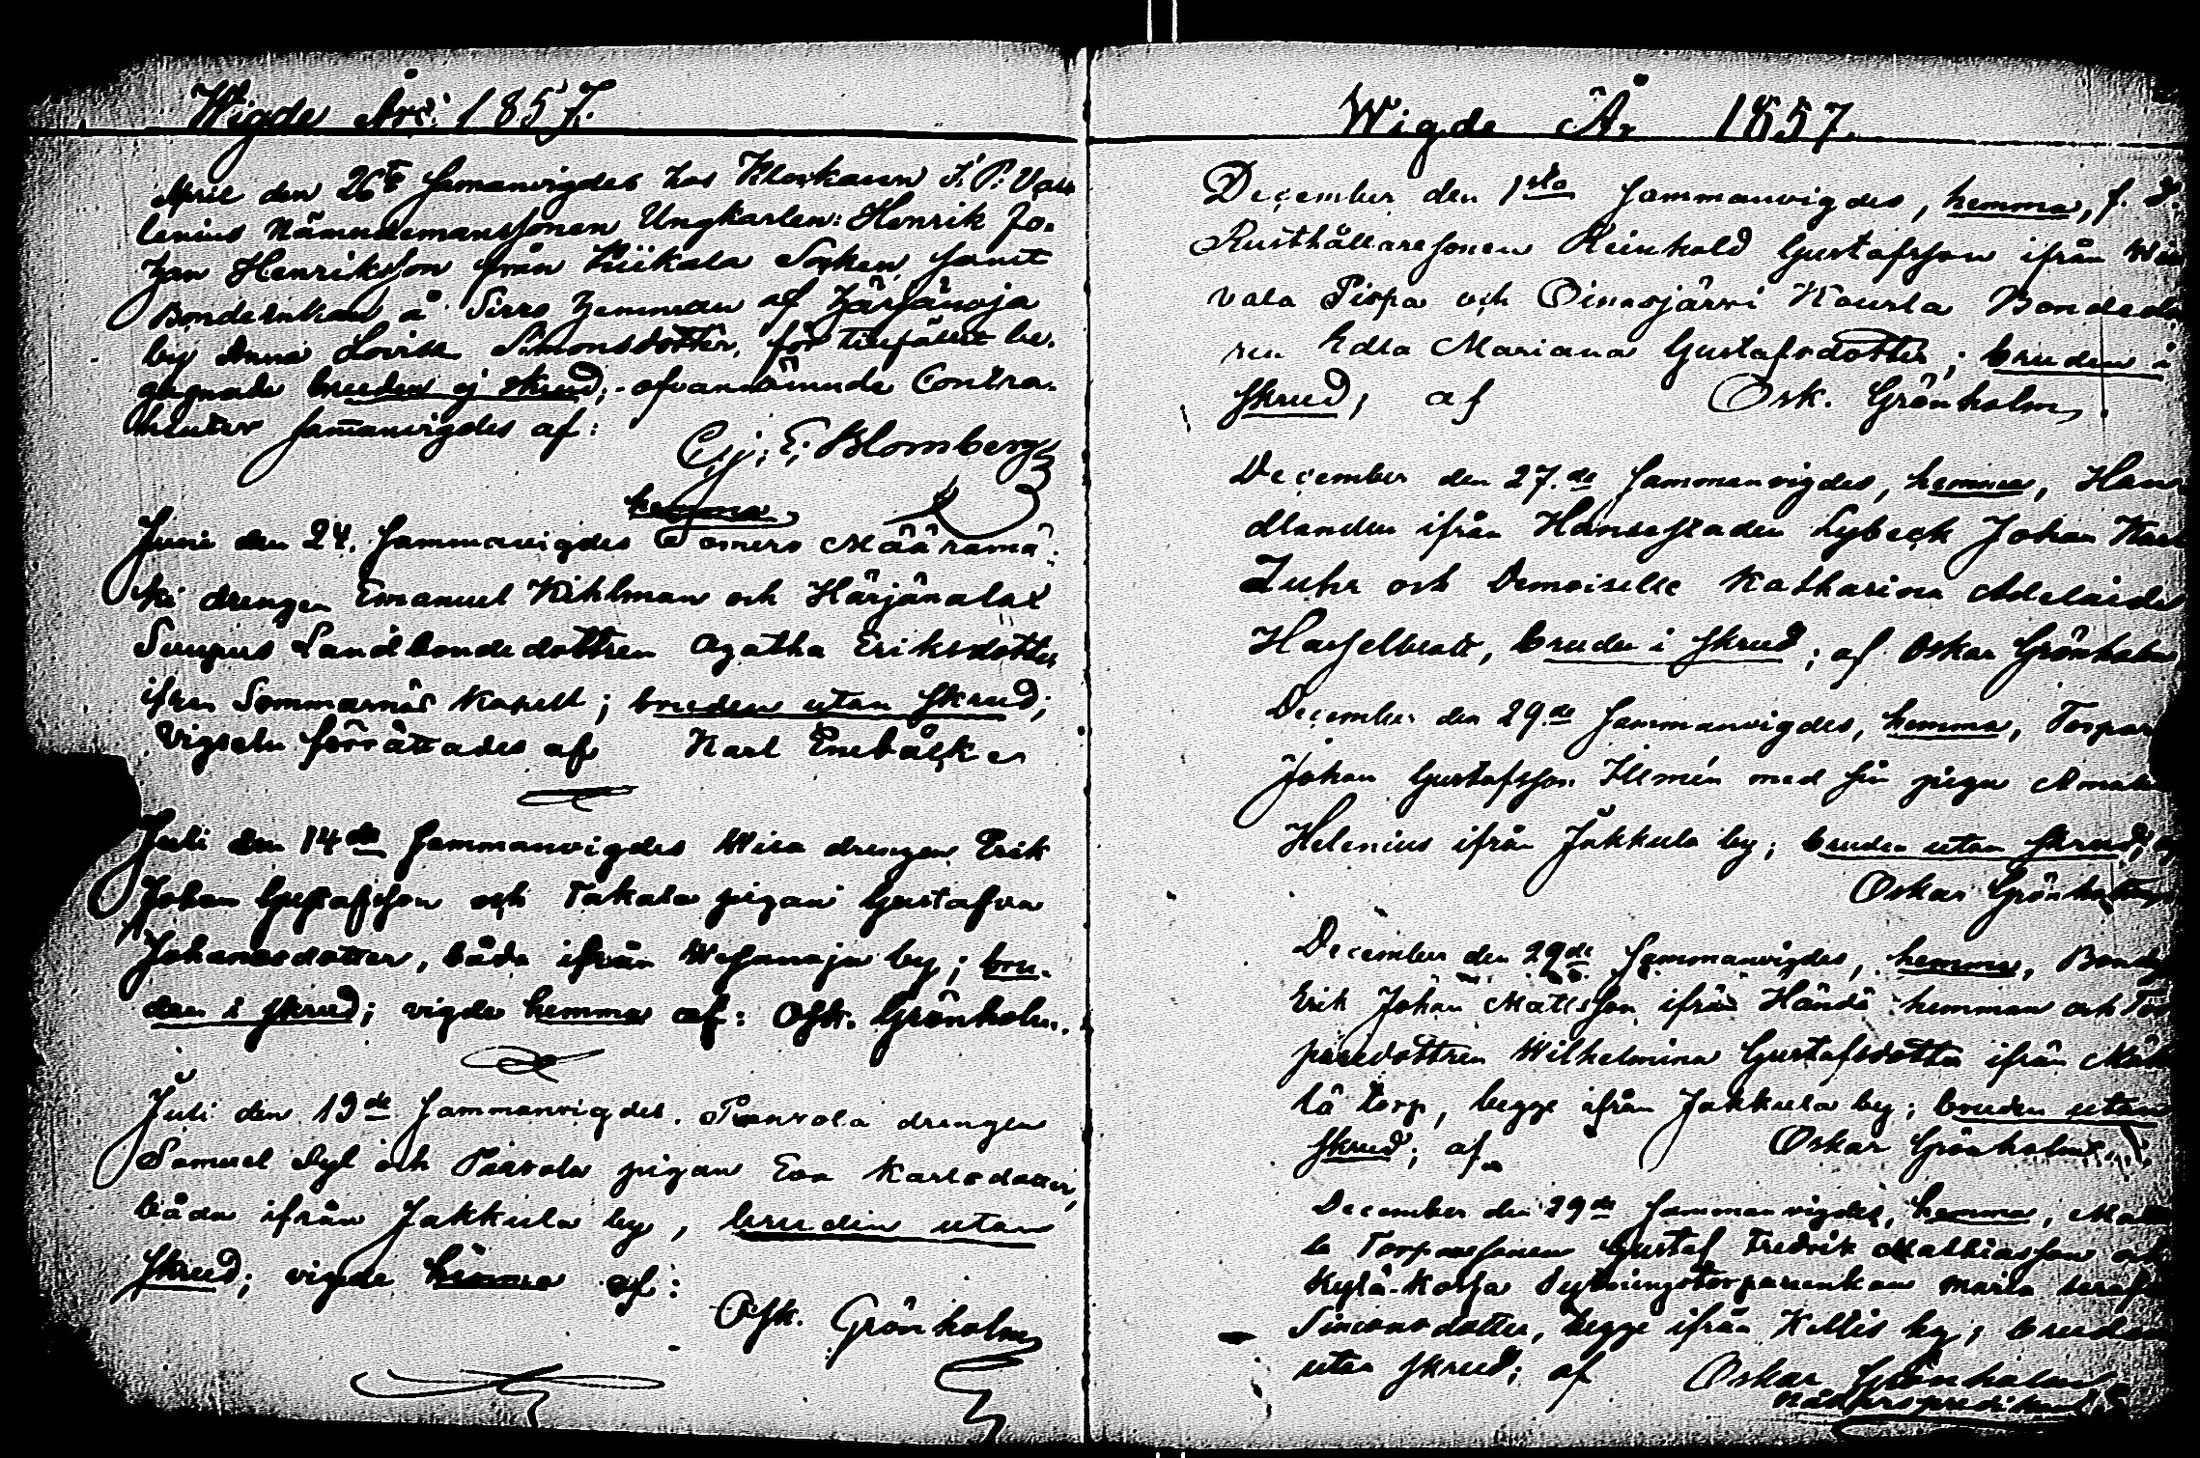 Wigde År: 1857.
April den 26te sammanvigdes hos Klockaren J. P. Val-
lenius Nämndemanssonen Ungkarlen: Henrik Jo-
han Henriksson från Kiikala Socken, samt
Bondeenkan å Sirro hemman af Härjänoja
by Anna Lovisa Simonsdotter, för tillfället be-
gagnade bruden ej skrud; - ofvannämnde Contra-
henter sam̄anvigdes af:
E. Blomberg
hemma,
Junii den 24. sammanvigdes Tomero Määrämä-
ki drengen Emanuel Kihlman och Härjänalax
Sempus Landbondedottren Agatha Eriksdotter
ifrån Sommarnäs Kapell; bruden utan skrud;
Vigseln förrättades af Karl Enebäcker
Juli den 14de sammanvigdes Wisa drengen Erik
Johan Gustafsson och Takala pigan Gustafva
Johansdotter, båda ifrån Wesanoja by; bru-
den i skrud; vigde hemma af: Osk. Grönholm.
Juli den 19de sammanvigdes Panvola drengen
Samuel och Paavola pigan Eva Karlsdotter,
båda ifrån Jakkula by, bruden utan
skrud; vigde hemma af:
Osk. Grönholm
Wigde År 1857.
December den 1sta sammanvigdes, hemma, f. d.
Rusthållaresonen Reinhold Gustafsson ifrån
vala Pispa och Oinasjärvi Kourla Bondedott
ren Edla Mariana Gustafsdotter; bruden i
skrud; af Osk. Grönholm.
December den 27.de sammanvigdes, hemma, Han-
dlanden ifrån Hansestaden Lybeck Johan Karl
Luhr och Demoiselle Katharina Adelaide
Hasselblatt, bruden i skrud; af Oskar Grönholm
December den 29.de sammanvigdes, hemma, Torpar
Johan Gustafsson Ilmén med sin piga Amalia
Helenius ifrån Jakkula by; bruden utan skrud; af
Oskar Grönholm
December den 29de sammanvigdes, hemma, Bonde
Erik Johan Mattsson ifrån Händä hemman och Tor
paredottren Wilhelmina Gustafsdotter ifrån Mäk
lä torp, begge ifrån Jakkula by; bruden utan
skrud; af Oskar Grönholm.
December den 29de sammanvigdes, hemma,
la Torparesonen Gustaf Fredrik Mathiasson och
Kylä-Korpa Sytningstorpareenkan Maria
Simonsdotter, begge ifrån Kettis by; bruden
utan skrud; af Oskar Grönholm
Nådårspredikant